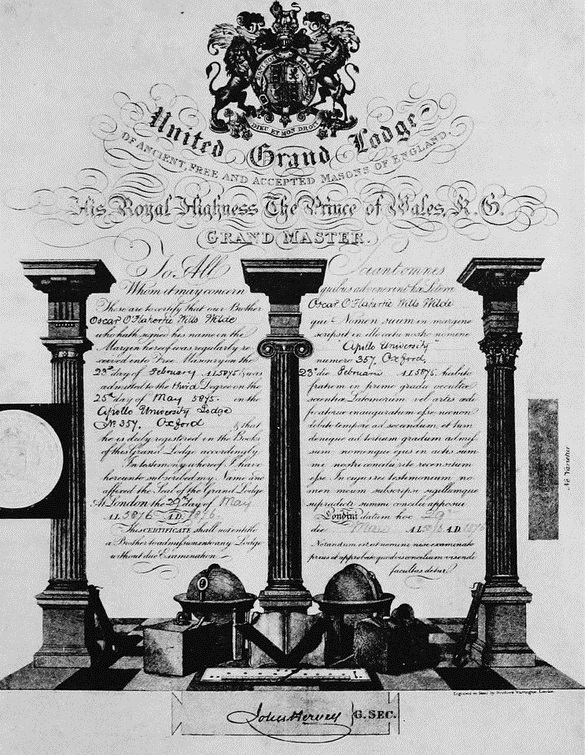 DIEU ET MON DROIT
United Grand Lodge
OF ANCIENT, FREE AND ACCEPTED MASONS OF ENGLAND.
His Royal Highness The Prince of Wales, K. G.
GRAND MASTER.
To All
Whom it may concern
These are to certify that our Brother
Oscar O'Flahertie Wills Wilde
who hath signed his name in the
Margin hereof was regularly re
ceived into Free Masonry on the
23rd day of February A.L. 5875 & was
admitted to the Third Degree on the
25th day of May 5875 on the
Apollo University Lodge
No. 357. Oxford & that
he is duly registered in the Books
of this Grand Lodge accordingly.
In testimony whereof I have
hereunto subscribed my Name and
affixed the Seal of the Grand Lodge
At London the 29th day of May
A.L. 5876 A.D. 1876.
This CERTIFICATE shall not entitle
a Brother to admission into any Lodge
without due Examination
Sciant omnes
quibus advenerint has Literæ
Oscar O'Flahertie Wills Wilde
qui Nomen suum in margine
scripsit in illo coetu nostro nomine
Apollo University
numero 357, Oxford,
23o die Februarii A.L. 5875. habito
fratrum in primo gradu occultæ
scientiæ Latomorum vel artis ædi
ficatoriæ inauguratum esse nonon
debito tempore ad secundum, et tum
denique ad tertium gradum admis
sum nomenque ejus in actis sum
mi nostri concilii rite recensitum
esse. In cujus rei testimonium no
men meum subscripsi sigillumque
supradicti summi concilii apposui
Londini datum hoc 29o
die Maii A.L. 5876 A.D. 1876
Notandum est ut nomini nisi examinato
prius et approbato quodvis concilium visendi
facultas detur.
Ne Varietur
Engraved on Steel by
London
John Hervey G. SEC.